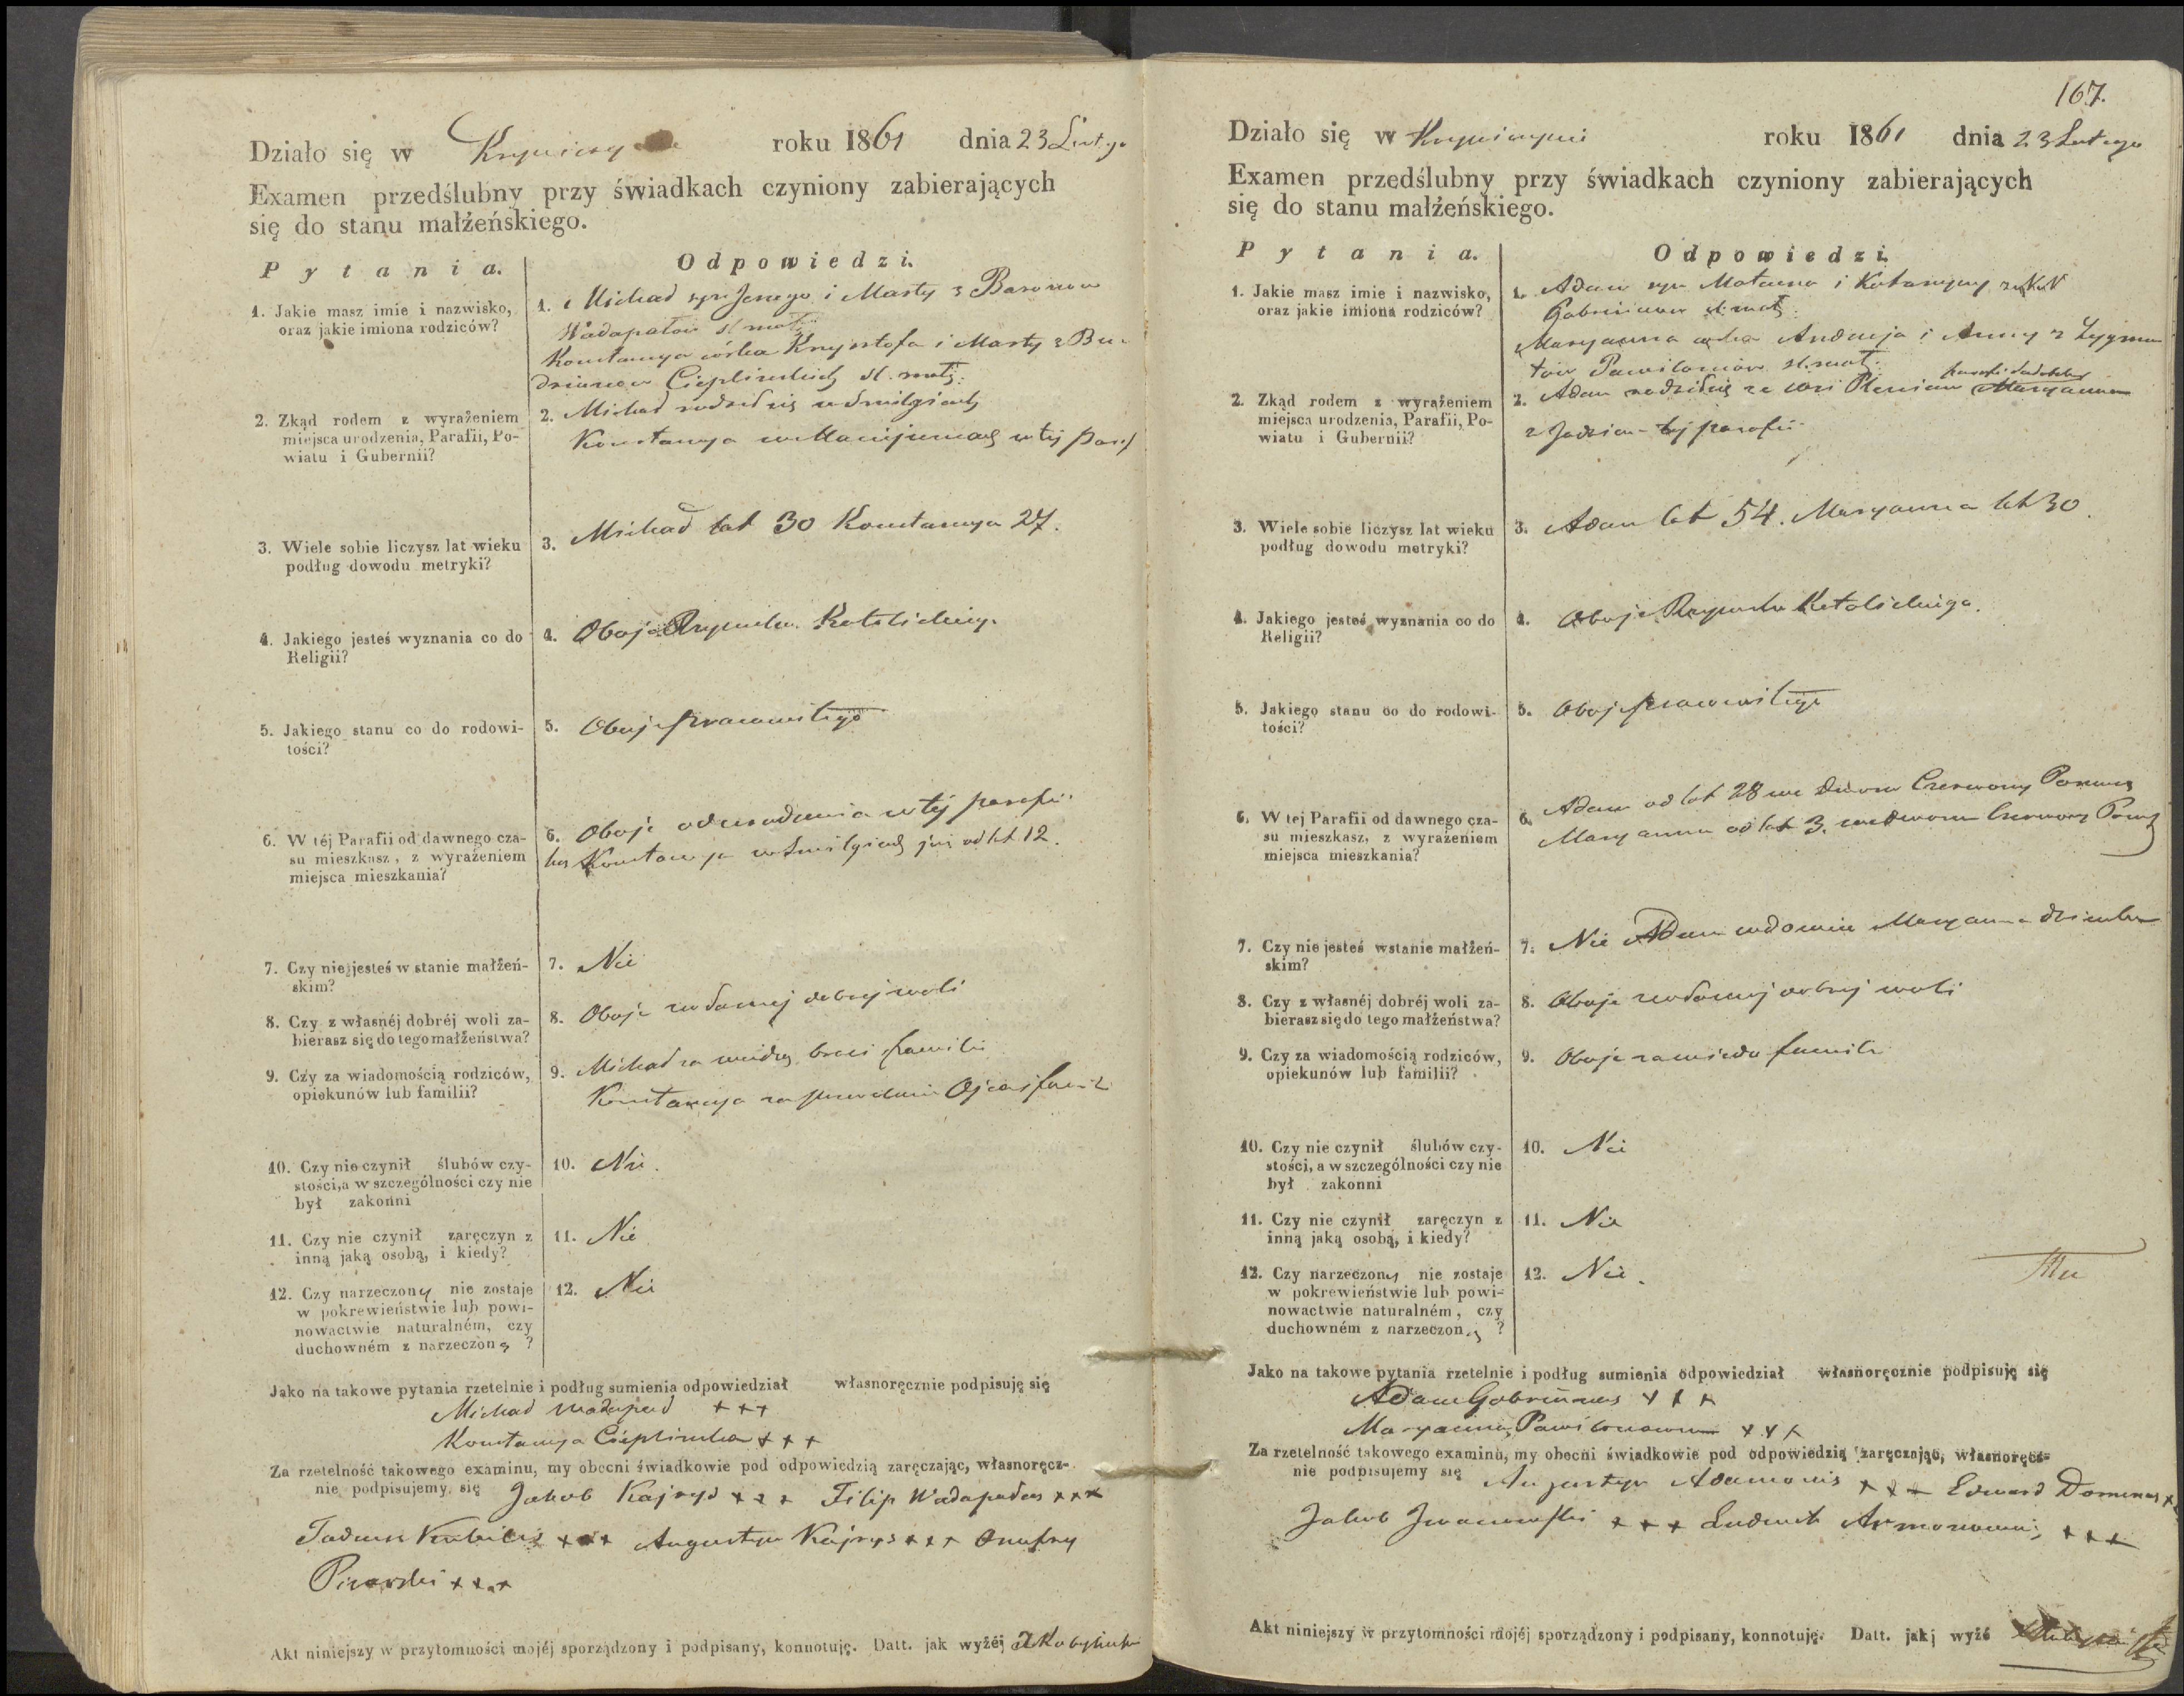 Działo się w roku 1861 dnia 23 Lutego
Examen przedślubny przy świadkach czyniony zabierających
się do stanu małżeńskiego.
Pytania. Odpowiedzi.
1. Jakie masz imie i nazwisko,
oraz jakie imiona rodziców?
1. Michał syn Jerzego i Marty z Baronow
Wadapałow sl. mał.
Konstancya córka Krzysztofa i Marty z Bu-
Cieplinskich sl. małż.
2. Zkąd rodem z wyrażeniem
miejsca urodzenia, Parafii, Po-
wiatu i Gubernii?
2. Michał rodził się
Konstancya w tej Paraf
3. Wiele sobie liczysz lat wieku
podług dowodu metryki?
3. Michał lat 30 Konstancya 27.
4. Jakiego jesteś wyznania co do
Religii?
4. Oboje Rzymsko Katolickiego
5. Jakiego stanu co do rodowi-
tości?
5. Oboje pracowitego
6. W téj Parafii od dawnego cza-
su mieszkasz, z wyrażeniem
miejsca mieszkania?
6. Oboje od urodzenia w tej parafii
Konstancya już od lat 12.
7. Czy nie jesteś w stanie małżeń-
skim?
7. Nie
8. Czy z własnéj dobréj woli za-
bierasz się do tego małżeństwa?
8. Oboje z własnej dobrej woli
9. Czy za wiadomością rodziców,
opiekunów lub familii?
9. Michał za wiedzą braci familii
Konstancya Ojca i famil
10. Czy nie czynił ślubów czy-
stości, a w szczególności czy nie
był zakonni
10. Nie.
11. Czy nie czynił zaręczyn z
inną jaką osobą, i kiedy?
11. Nie
12. Czy narzeczony nie zostaje
w pokrewieństwie lub powi-
nowactwie naturalném, czy
duchowném z narzeczoną ?
12. Nie
Jako na takowe pytania rzetelnie i podług sumienia odpowiedział własnoręcznie podpisuję się
Michał Wadapał +++
Konstancya Cieplinska +++
Za rzetelność takowego examinu, my obecni świadkowie pod odpowiedzią zaręczając, własnoręcz-
nie podpisujemy się Jakob Kajrys +++ Filip Wadapałas +++
Tadeusz Kubilis +++ Augustyn Kajrys +++ Onufry
Pisarski +++
Akt niniejszy w przytomności mojéj sporządzony i podpisany, konnotuję. Datt. jak wyżéj
167.
Działo się w roku 1861 dnia 23 Lutego
Examen przedślubny przy świadkach czyniony zabierających
się do stanu małżeńskiego.
Pytania. Odpowiedzi.
1. Jakie masz imie i nazwisko,
oraz jakie imiona rodziców?
1. Adam syn Mateusza i Katarzyny z NN
sl. małż.
Maryanna córka Andrzeja i Anny z Zygmun
tow Pawilonów sl. mał.
2. Zkąd rodem z wyrażeniem
miejsca urodzenia, Parafii, Po-
wiatu i Gubernii?
2. Adam rodził się ze wsi Maryanna
tej parafii
3. Wiele sobie liczysz lat wieku
podług dowodu metryki?
3. Adam lat 54. Maryanna lat 30.
4. Jakiego jesteś wyznania co do
Religii?
4. Oboje Rzymsko Katolickiego.
5. Jakiego stanu co do rodowi-
tości?
5. Oboje pracowitego
6. W tej Parafii od dawnego cza-
su mieszkasz, z wyrażeniem
miejsca mieszkania?
6. Adam od lat 28 we dworze Czerwony
Maryanna od lat 3. we dworze Czerwony
7. Czy nie jesteś wstanie małżeń-
skim?
7. Nie Adam wdowiec Maryanna dziewka
8. Czy z własnéj dobréj woli za-
bierasz się do tego małżeństwa?
8. Oboje z własnej dobrej woli
9. Czy za wiadomością rodziców,
opiekunów lub familii?
9. Oboje za wiedzą familii
10. Czy nie czynił ślubów czy-
stości, a w szczególności czy nie
był zakonni
10. Nie
11. Czy nie czynił zaręczyn z
inną jaką osobą, i kiedy?
11. Nie
12. Czy narzeczony nie zostaje
w pokrewieństwie lub powi-
nowactwie naturalném, czy
duchowném z narzeczoną ?
12. Nie.
Jako na takowe pytania rzetelnie i podług sumienia odpowiedział własnoręcznie podpisuję się
Adam +++
Maryanna +++
Za rzetelność takowego examinu, my obecni świadkowie pod odpowiedzią zaręczając, własnoręcz-
nie podpisujemy się Augustyn Adamonis +++ Edward
Jakub Iwanowski +++ Ludwik +++
Akt niniejszy w przytomności mojéj sporządzony i podpisany, konnotuję. Datt. jakj wyżé